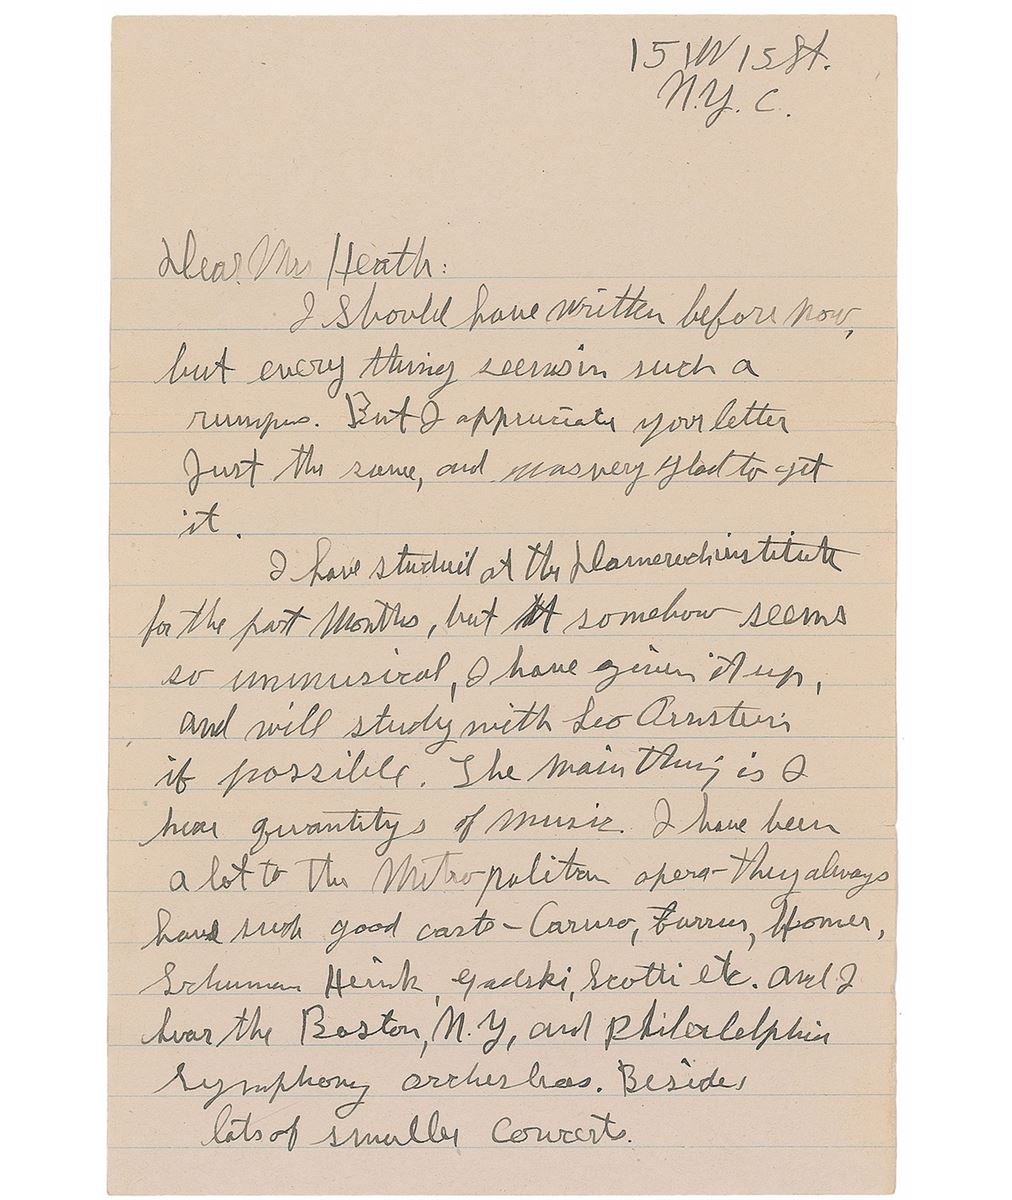 151 W 15 St.
N.Y. C.
Dear Mrs Heath:
I should have written before now,
but every thing seems in such a
rumpus. But I appreciate your letter
Just the same, and was very glad to get
it.
I have studied at the Damrosch institute
for the past Months, but it somehow seems
so unmusical, I have given it up,
and will study with Leo Ornstein
if possible. The main thing is I
hear quantitys of music. I have been
a lot to the Metropolitan opera - they always
have such good casts - Caruso, Farrar, Homer,
Schuman Heink, Gadski, Scotti etc. And I
hear the Boston, N.Y, and Philadelphia
Symphony orchestras. Besides
lots of smaller concerts.